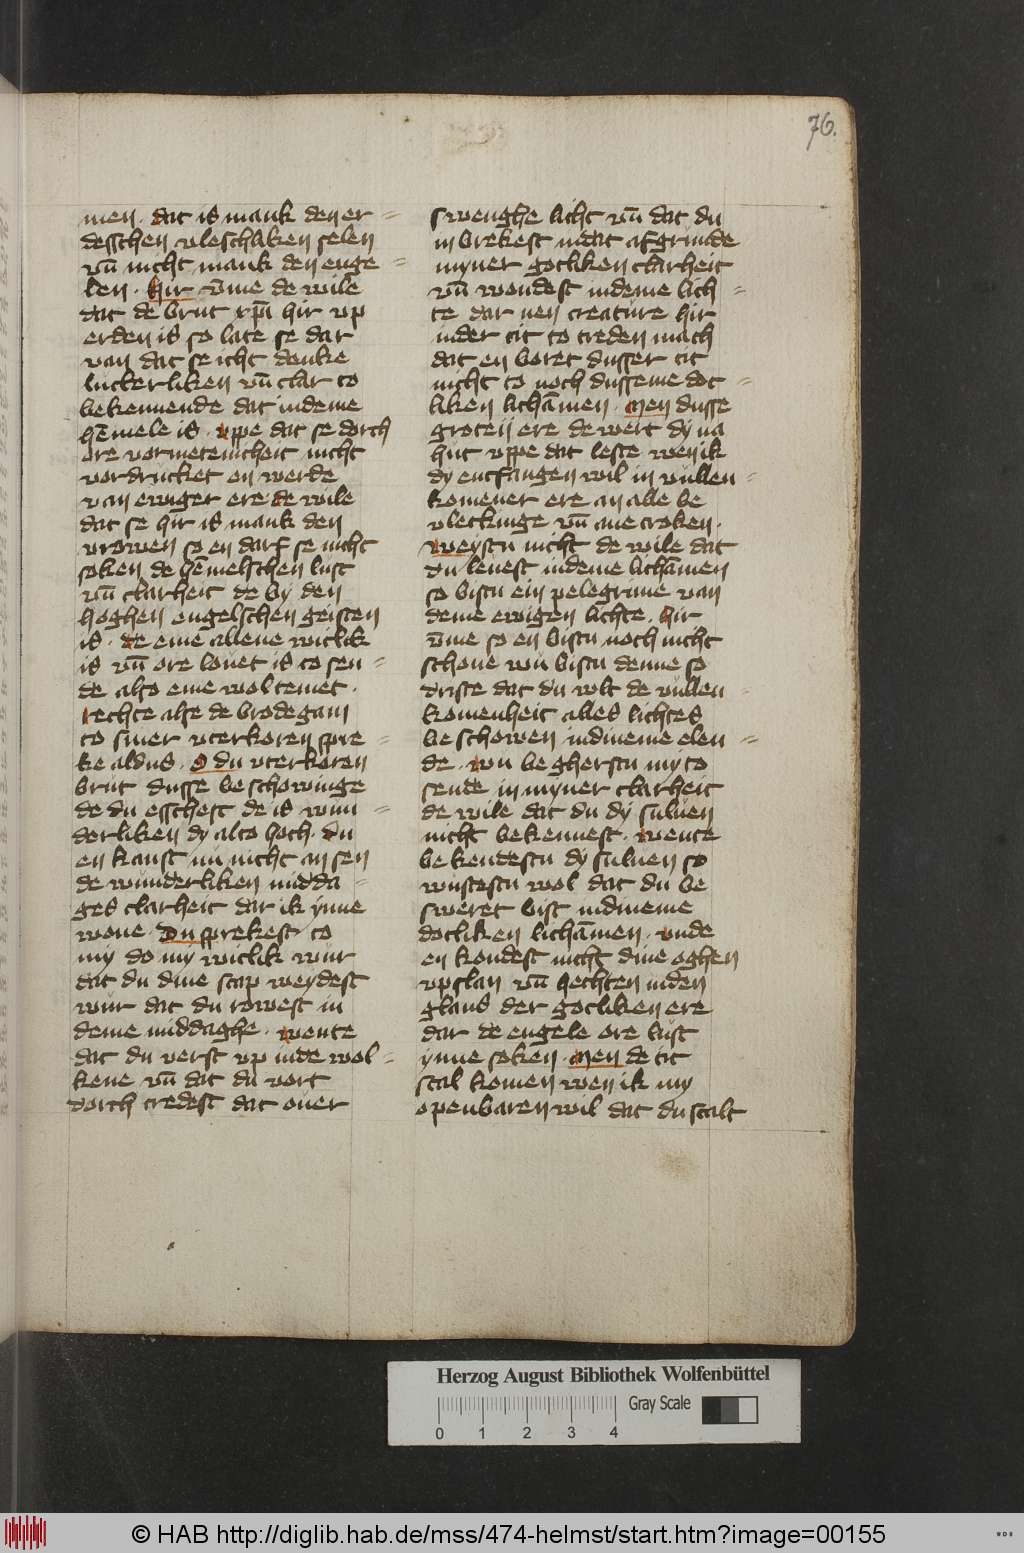 76.
men · dat is mank den er =
desschen vleschliken selen
vn̄ nicht mank den enge =
len · hir v̄me de wile
dat de brut xp̄i hir vp
erden is so late se dar
van dat se icht denke
luckerliken vn̄ clar to
bekennende dat indeme
hēmele is · vppe dat se dorch
ore vormetenicheit nicht
vordrucket en werde
van ewiger ere de wile
dat se hir is mank den
vrowen so en darf se nicht
soken de hēmelschen lust
vn̄ clarheit de by den
hoghen engelschen geisten
is · de eme allene witlik
is vn̄ ore louet is to sen =
de also eme wol temet ·
rechte alse de brodegam
to siner vterkoren spre =
ke aldus · O du vterkoren
brut dusse beschowinge
de du esschest de is wun =
derliken dy alto hoch · du
en kanst nu nicht an sen
de wunderliken midda =
ges clarheit dar ik ynne
wone · Du sprekest to
my do my witlik wur
dat du dine scap weydest
wur dat du rowest in
deme middaghe · wente
dat du verst vp inde wol =
kene vn̄ dat du vort
dorch tredest dat ouer
swenghe licht vn̄ dat du
in brekest indat afgrunde
myner gotliken clarheit
vn̄ wondest indeme lich =
te dar nen creature hir
inder tit to treden mach
dat en boret dusser tit
nicht to noch dusseme dot =
liken lichāmen · Men dusse
groten ere de wert dy na
hut vppe dat leste wen ik
dy entfangen wil in vullen =
komener ere an alle be
vleckinge vn̄ ane croken ·
weystu nicht de wile dat
du leuest indeme lichāmen
so bistu ein pelegrime van
deme ewigen lichte · hir
v̄me so en bistu noch nicht
schone wu bistu denne so
driste dat du wlt de vullen =
komenheit alles lichtes
beschowen indineme elen =
de · wu begherstu my to
sende in myner clarheit
de wile dat du dy suluen
nicht bekennest · wente
bekendestu dy suluen so
wustestu wol dat du be
sweret bist indineme
dotliken lichāmen · vnde
en kondest nicht dine oghen
vpslan vn̄ hechten inden
glans der gotliken ere
dar de engele ore lust
ynne soken · Men de tit
scal komen wen ik my
openbaren wil dat du scalt
Herzog August Bibliothek Wolfenbüttel
Gray Scale
0 1 2 3 4
© HAB http://diglib.hab.de/mss/474-helmst/start.htm?image=00155